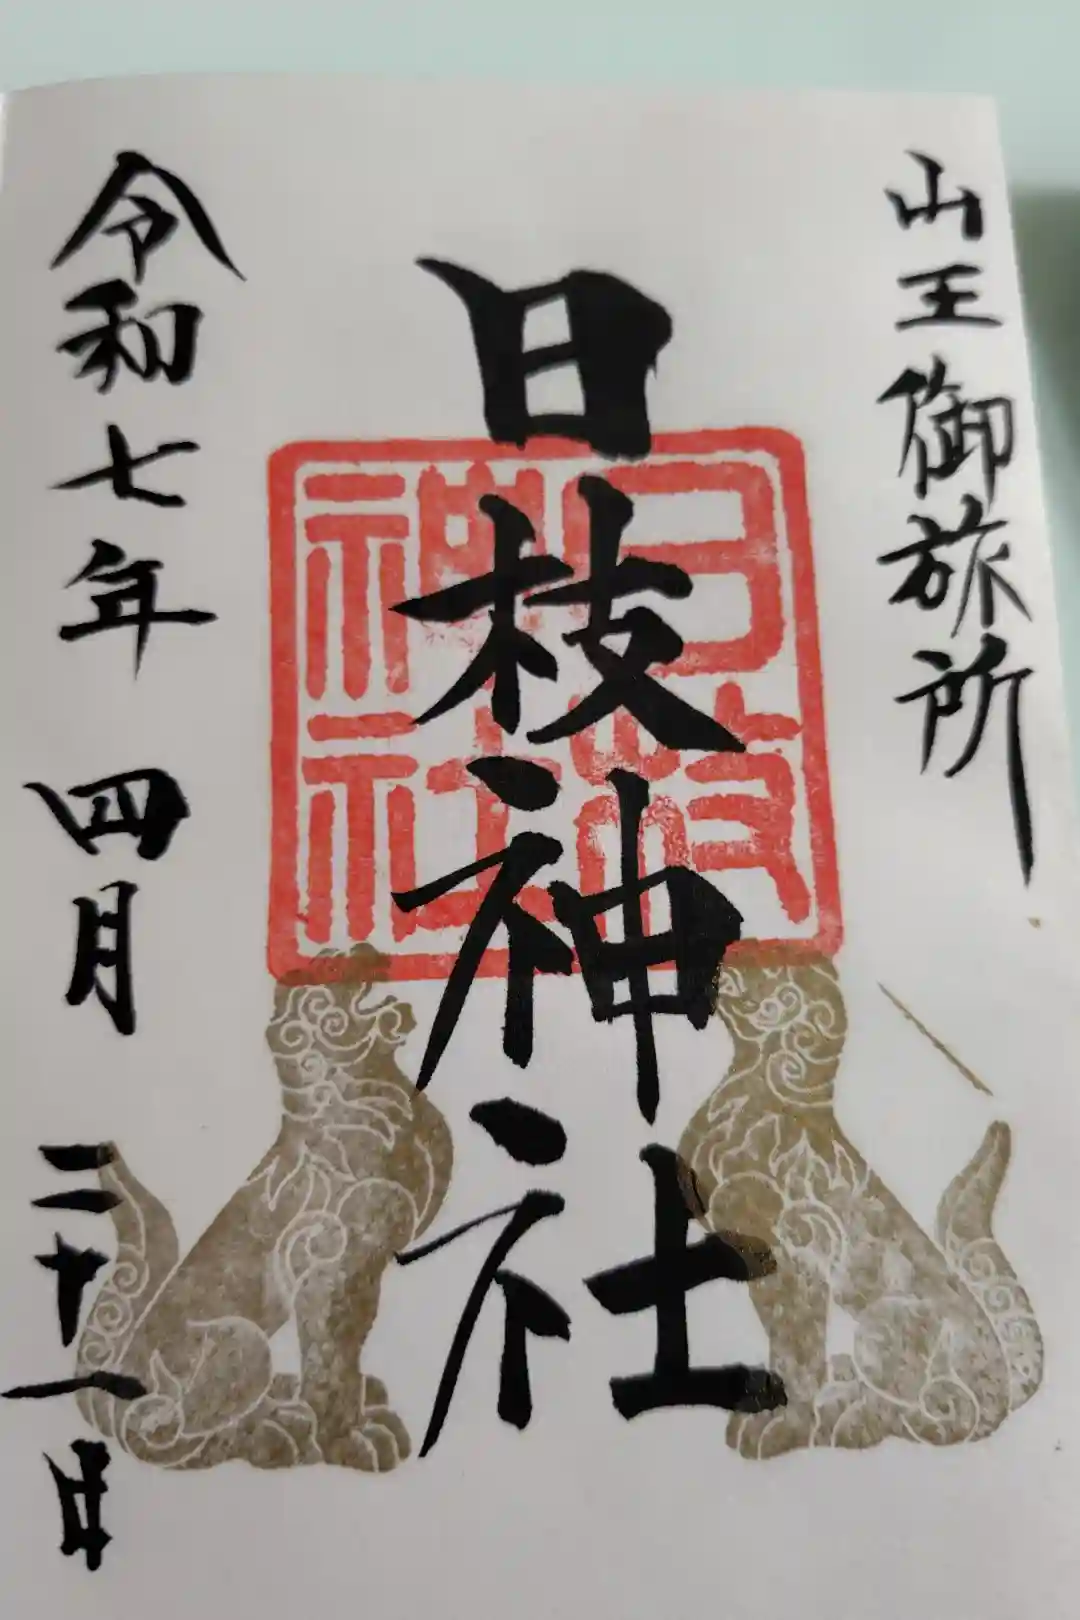 山王御旅所
日枝神社
日枝
神社
令和七年 四月 二十一日